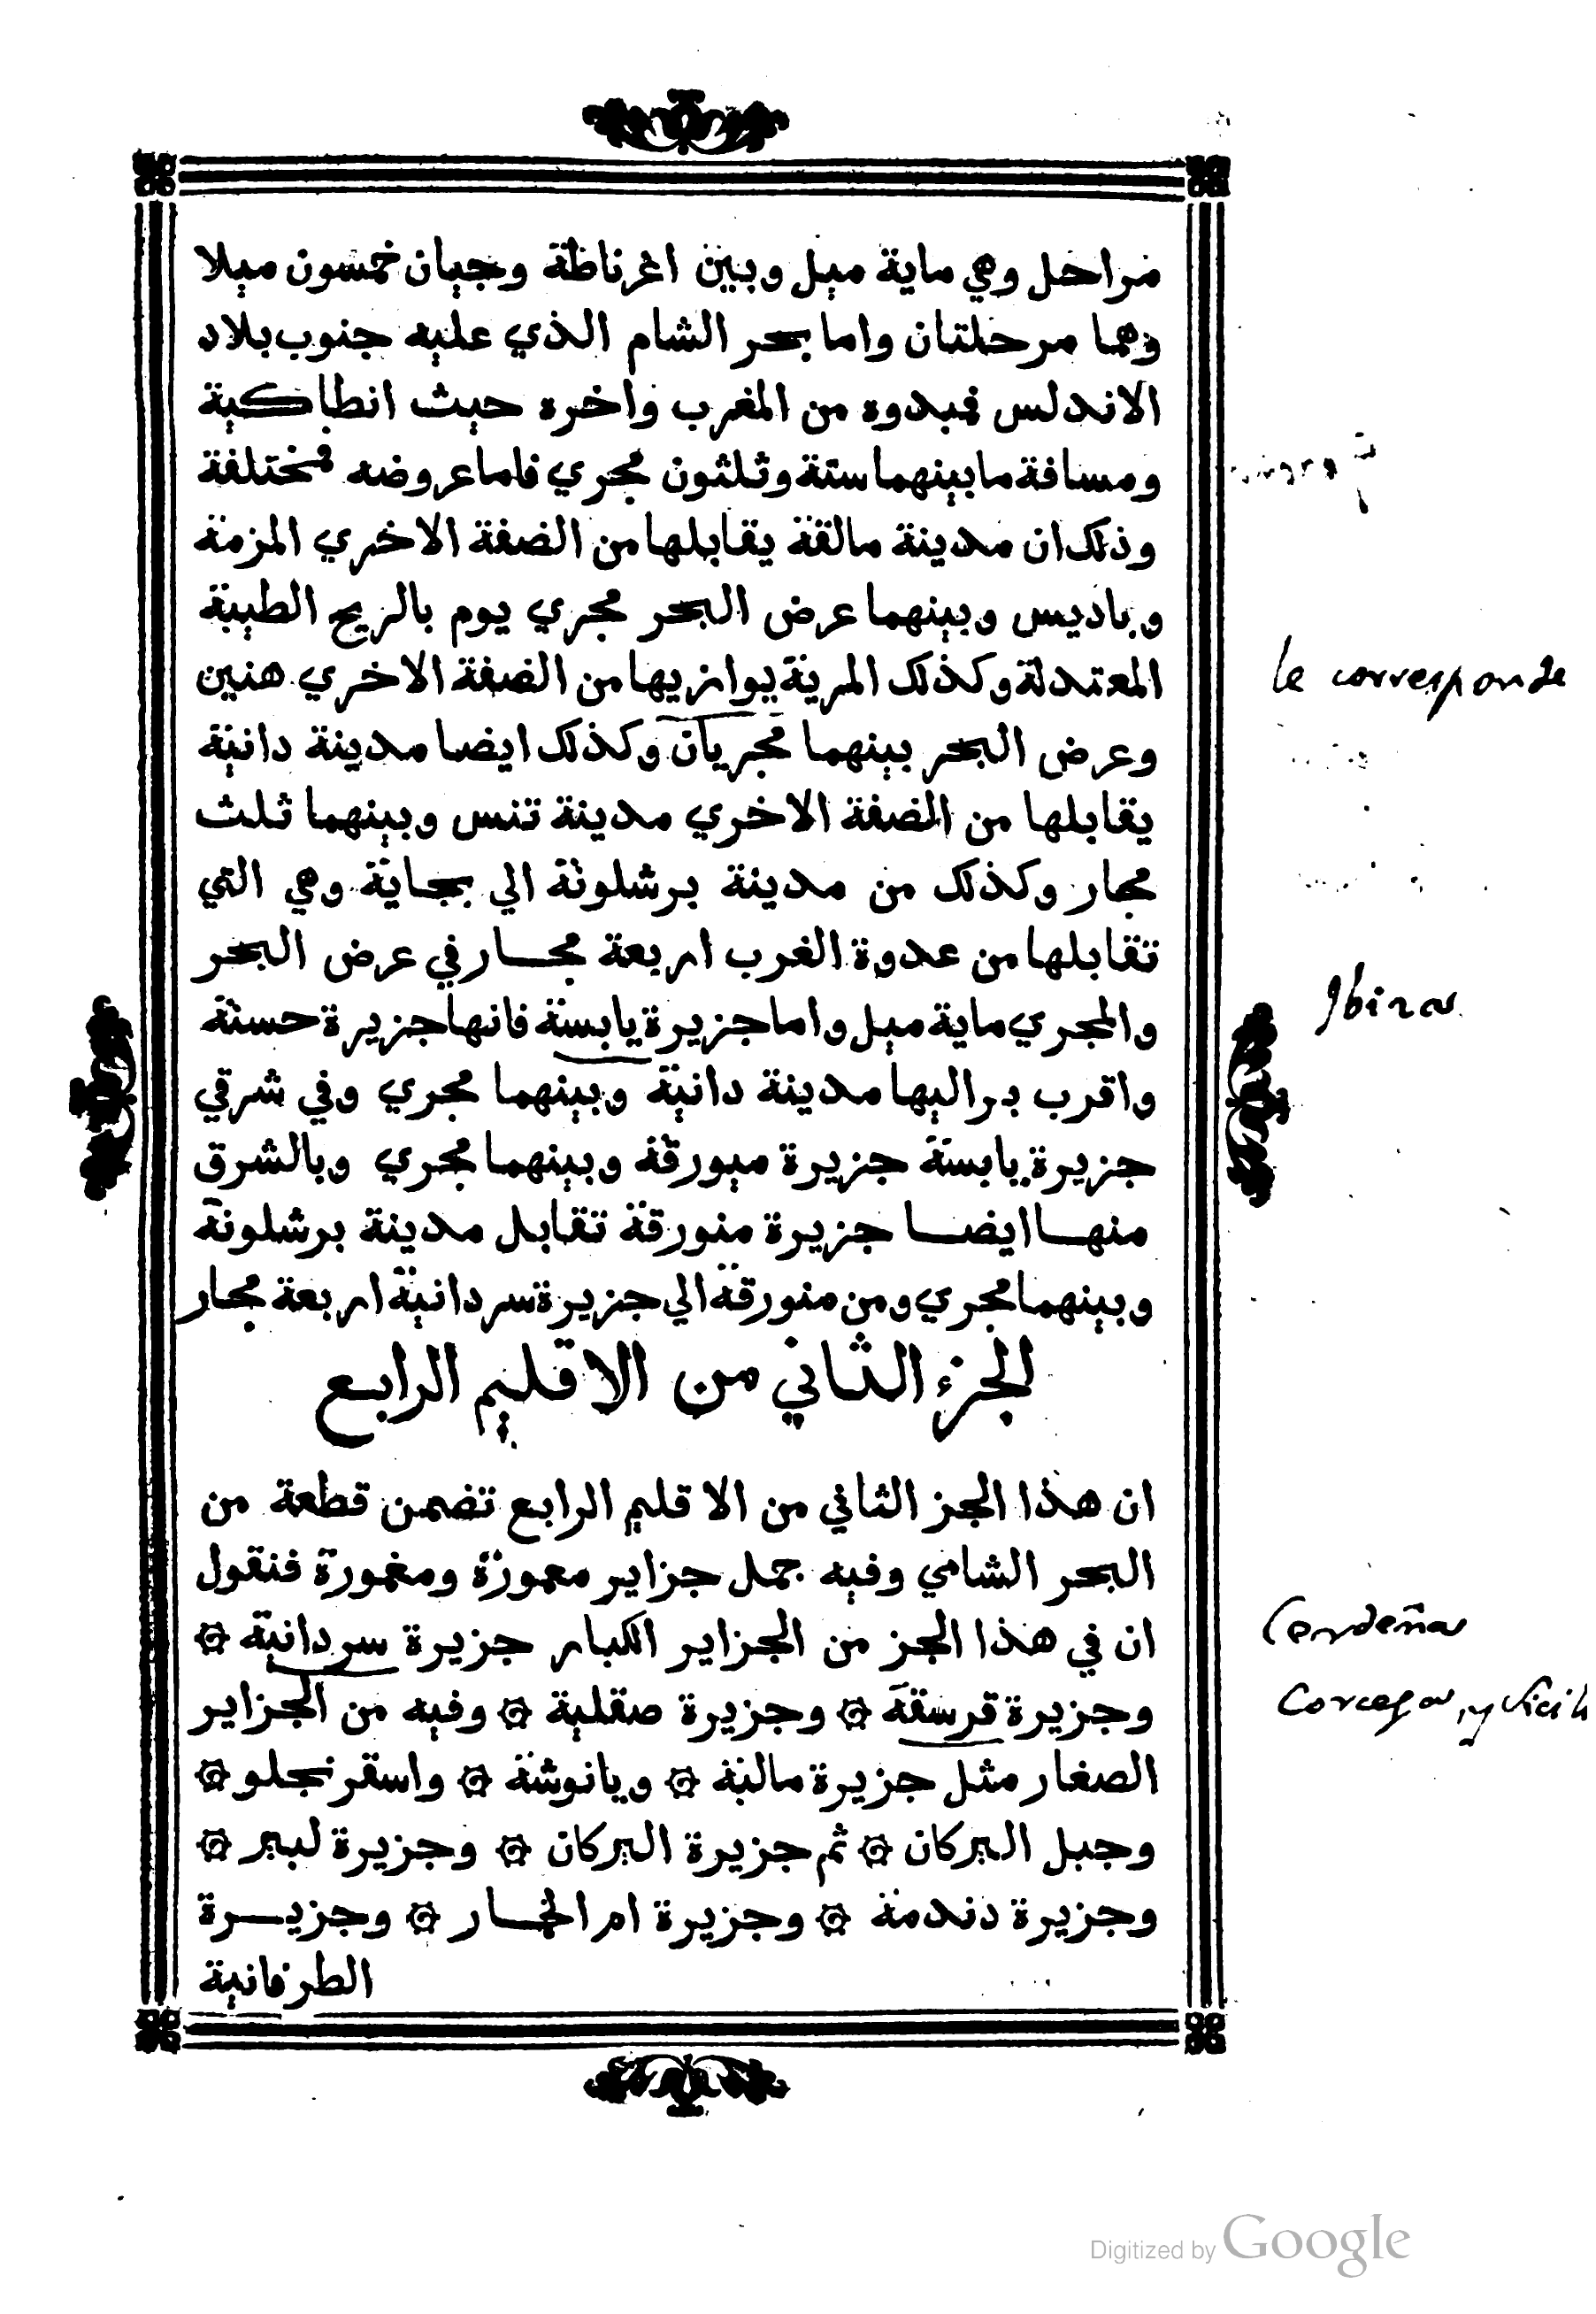 مراحل وهي ماية ميل وبين اغرناطة وجيان خمسون ميلا
وهما مرحلتان واما بحر الشام الذي عليه جنوب بلاد
الاندلس فمبدوه من المغرب واخره حيث انطاكية
ومسافة ما بينهما ستة وثلثون مجري فاما عروضه فمختلفة
وذلك ان مدينة مالقة يقابلها من الضفة الاخري المزمة
وباديس وبينهما عرض البحر مجري يوم بالريح الطيبة
المعتدلة وكذلك المرية يوازيها من الضفة الاخري هنين
وعرض البحر بينهما مجريان وكذلك ايضا مدينة دانية
يقابلها من الضفة الاخري مدينة تنس وبينهما ثلث
مجار وكذلك من مدينة برشلونة الي بجاية وهي التي
تقابلها من عدوة الغرب اربعة مجار في عرض البحر
والمجري ماية ميل واما جزيرة يابسة فانها جزيرة حسنة
واقرب بر اليها مدينة دانية وبينهما مجري وفي شرقي
جزيرة يابسة جزيرة ميورقة وبينهما مجري وبالشرق
منها ايضا جزيرة منورقة تقابل مدينة برشلونة
وبينهما مجري ومن منورقة الي جزيرة سردانية اربعة مجار
الجزء الثاني من الاقليم الرابع
ان هذا الجز الثاني من الاقليم الرابع تضمن قطعة من
البحر الشامي وفيه جمل جزاير معمورة ومغمورة فنقول
ان في هذا الجز من الجزاير الكبار جزيرة سردانية ۞
وجزيرة قرسقة ۞ وجزيرة صقلية ۞ وفيه من الجزاير
الصغار مثل جزيرة مالبة ۞ ويانوشة ۞ واسقرنجلو ۞
وجبل البركان ۞ ثم جزيرة البركان ۞ وجزيرة لبير ۞
وجزيرة دندمة ۞ وجزيرة ام الخمار ۞ وجزيرة
الطرفانية
le corresponde
Ibiza
Cerdeña
Corcega, y Sicil
Digitized by Google